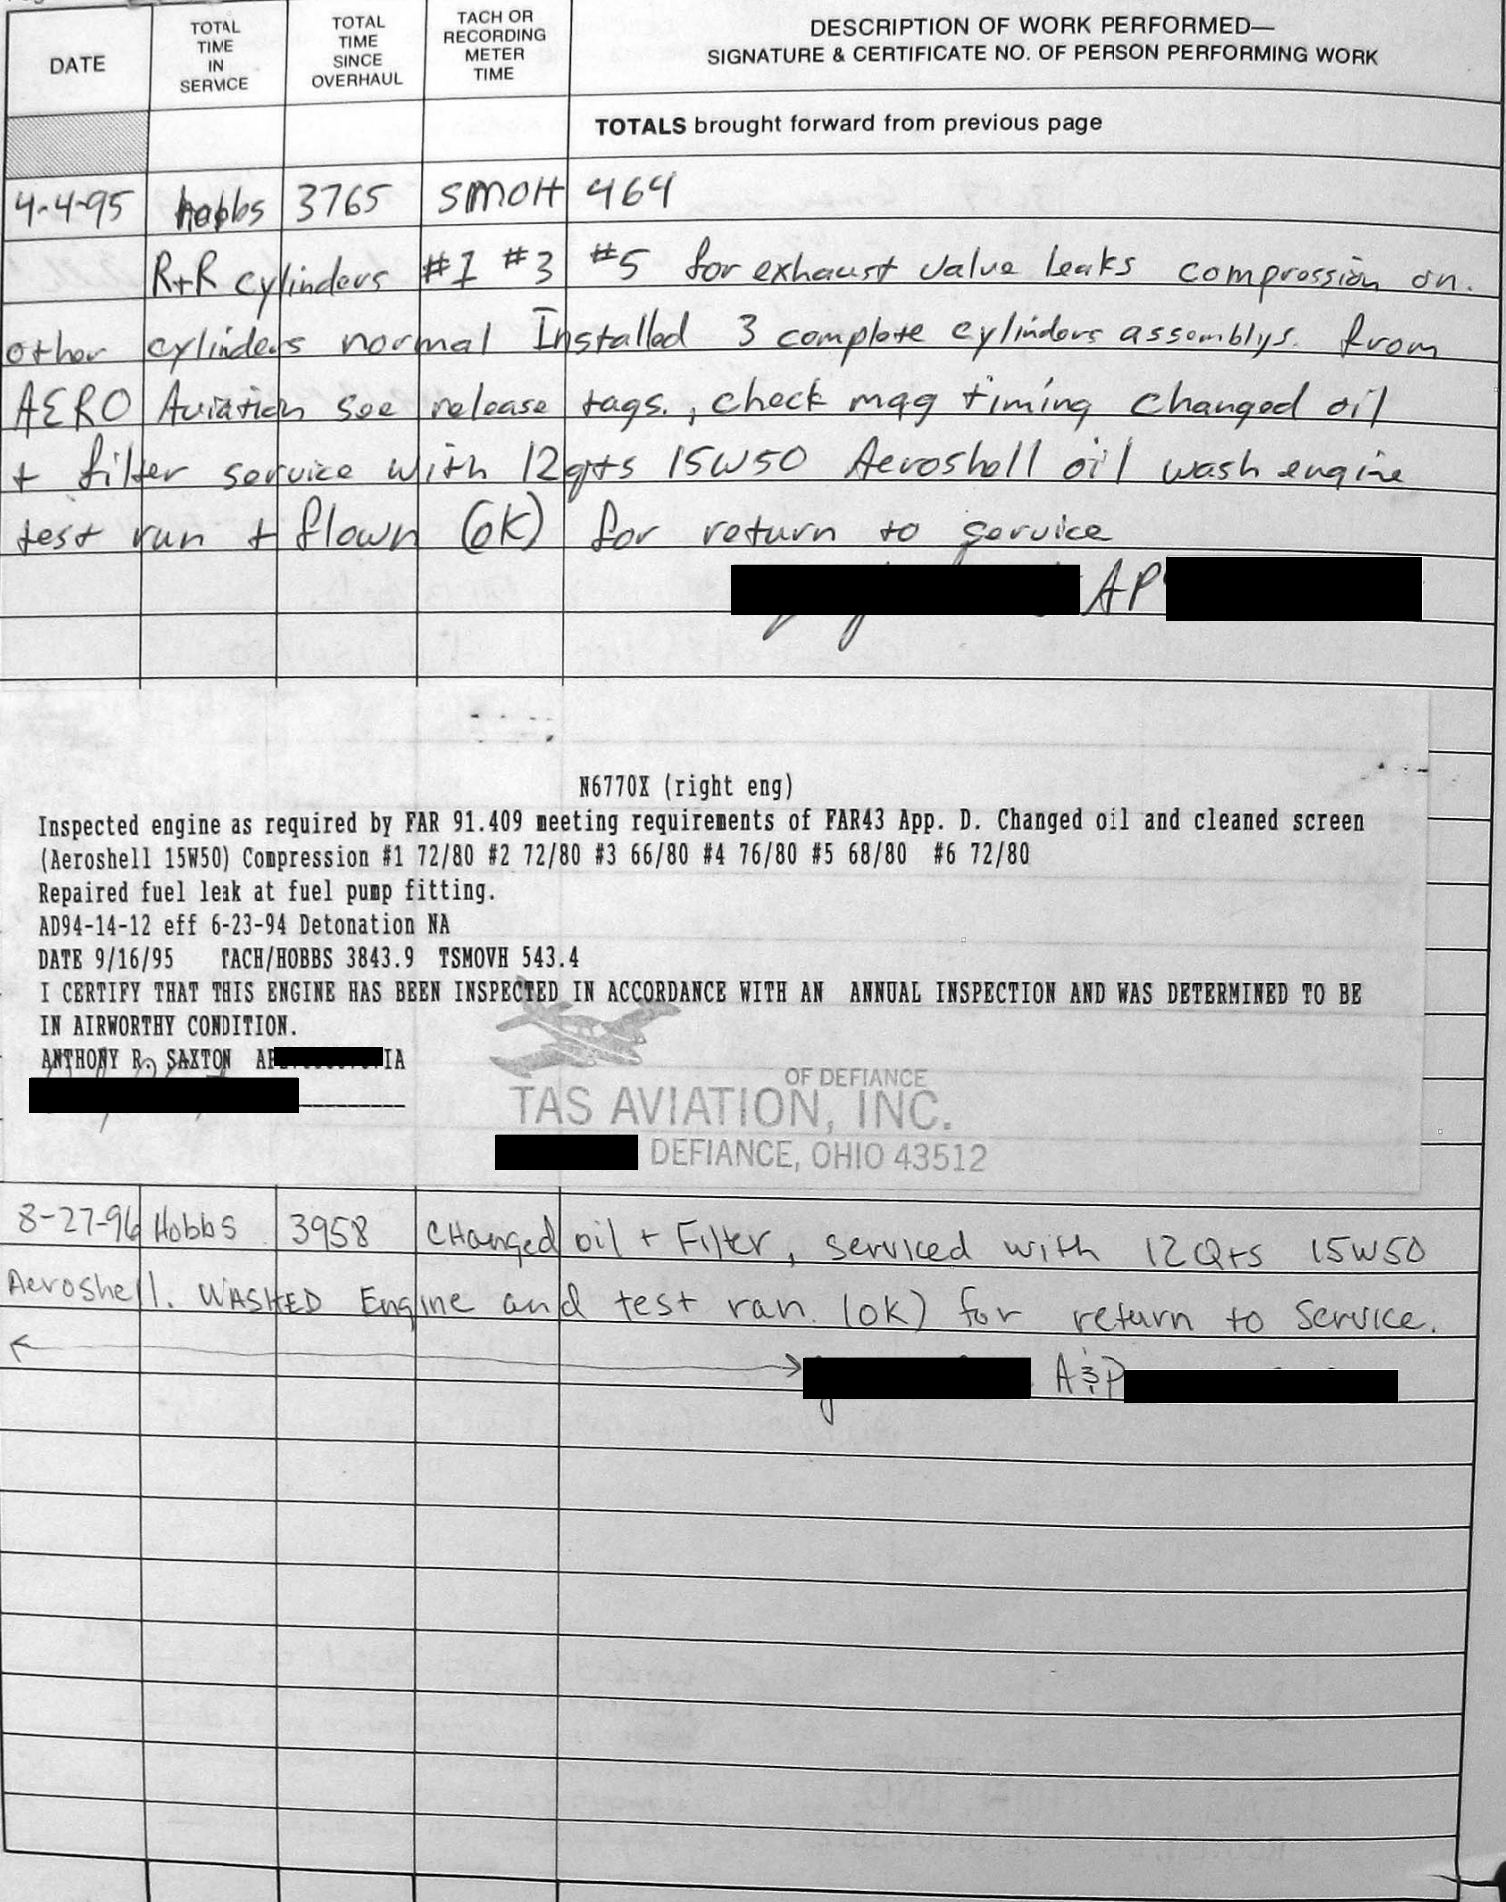 DATE
TOTAL TIME IN SERVICE
TOTAL TIME SINCE OVERHAUL
TACH OR RECORDING METER TIME
DESCRIPTION OF WORK PERFORMED—
SIGNATURE & CERTIFICATE NO. OF PERSON PERFORMING WORK
TOTALS brought forward from previous page
4-4-95 hobbs 3765 SMOH 464
R+R cylinders #1 #3 #5 for exhaust value leaks compression on.
other cylinders normal Installed 3 complete cylinders assemblys. from
AERO Aviation see release tags., check mag timing changed oil
+ filter service with 12qts 15W50 Aeroshell oil wash engine
test run + flown (ok) for return to service
AP
N6770X (right eng)
Inspected engine as required by FAR 91.409 meeting requirements of FAR43 App. D. Changed oil and cleaned screen
(Aeroshell 15W50) Compression #1 72/80 #2 72/80 #3 66/80 #4 76/80 #5 68/80 #6 72/80
Repaired fuel leak at fuel pump fitting.
AD94-14-12 eff 6-23-94 Detonation NA
DATE 9/16/95 TACH/HOBBS 3843.9 TSMOVH 543.4
I CERTIFY THAT THIS ENGINE HAS BEEN INSPECTED IN ACCORDANCE WITH AN ANNUAL INSPECTION AND WAS DETERMINED TO BE
IN AIRWORTHY CONDITION.
ANTHONY R. SAXTON AP IA
OF DEFIANCE
TAS AVIATION, INC.
DEFIANCE, OHIO 43512
8-27-96 Hobbs 3958 CHanged oil + Filter, serviced with 12Qts 15W50
Aeroshell. WASHED Engine and test ran. (ok) for return to Service.
A&P